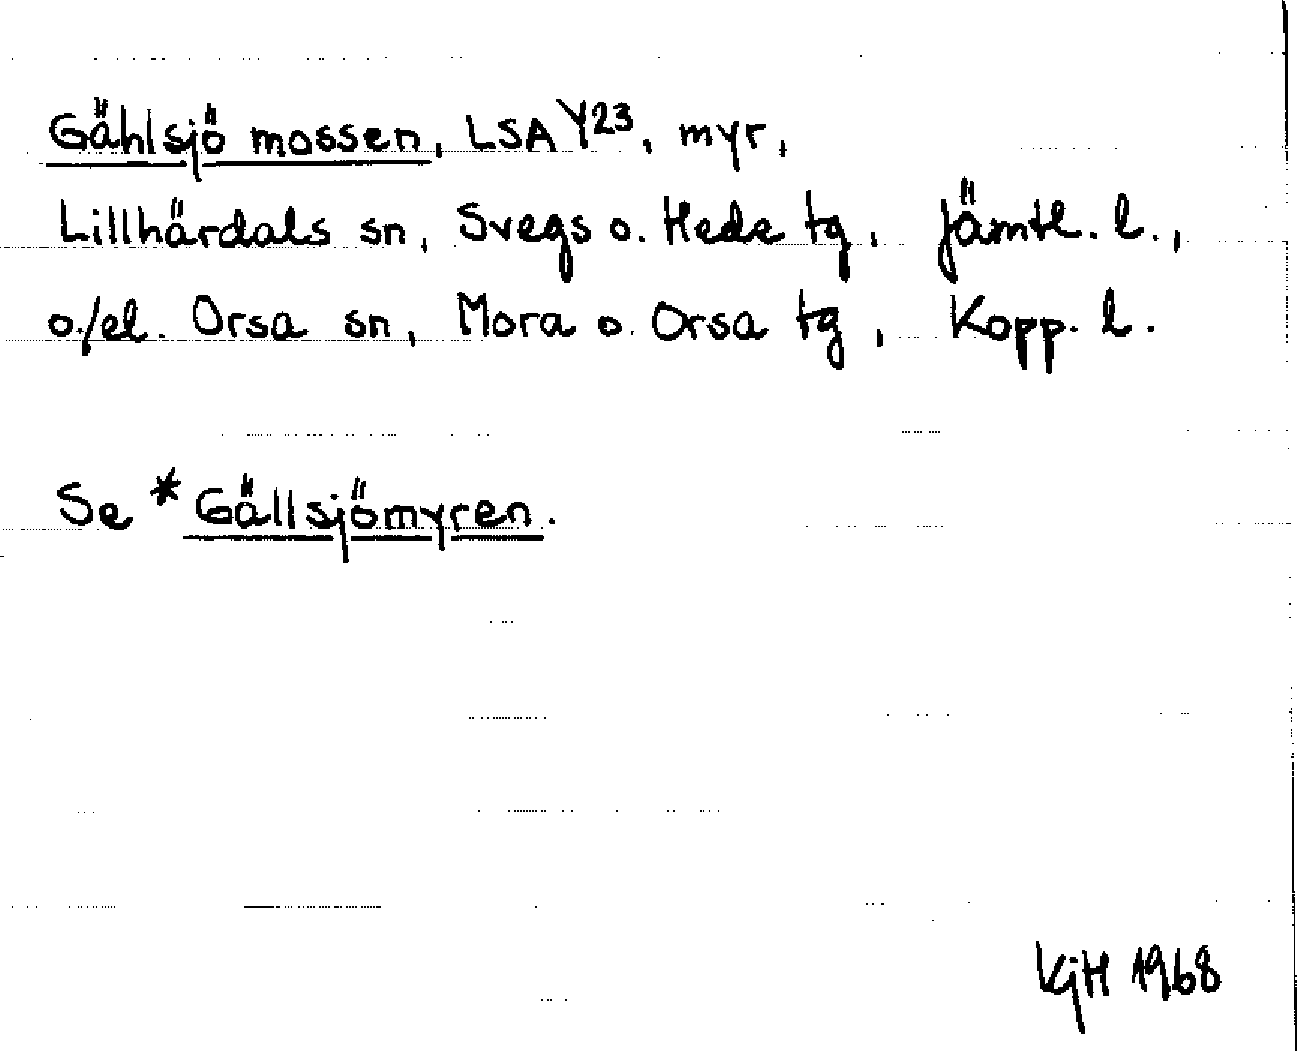 Gählsjö mossen, LSA Y23, myr,
Lillhärdals sn, Svegs o. Hede tg, Jämtl. l.,
o./el. Orsa sn, Mora o. Orsa tg, Kopp. l.
Se *Gällsjömyren.
KjH 1968